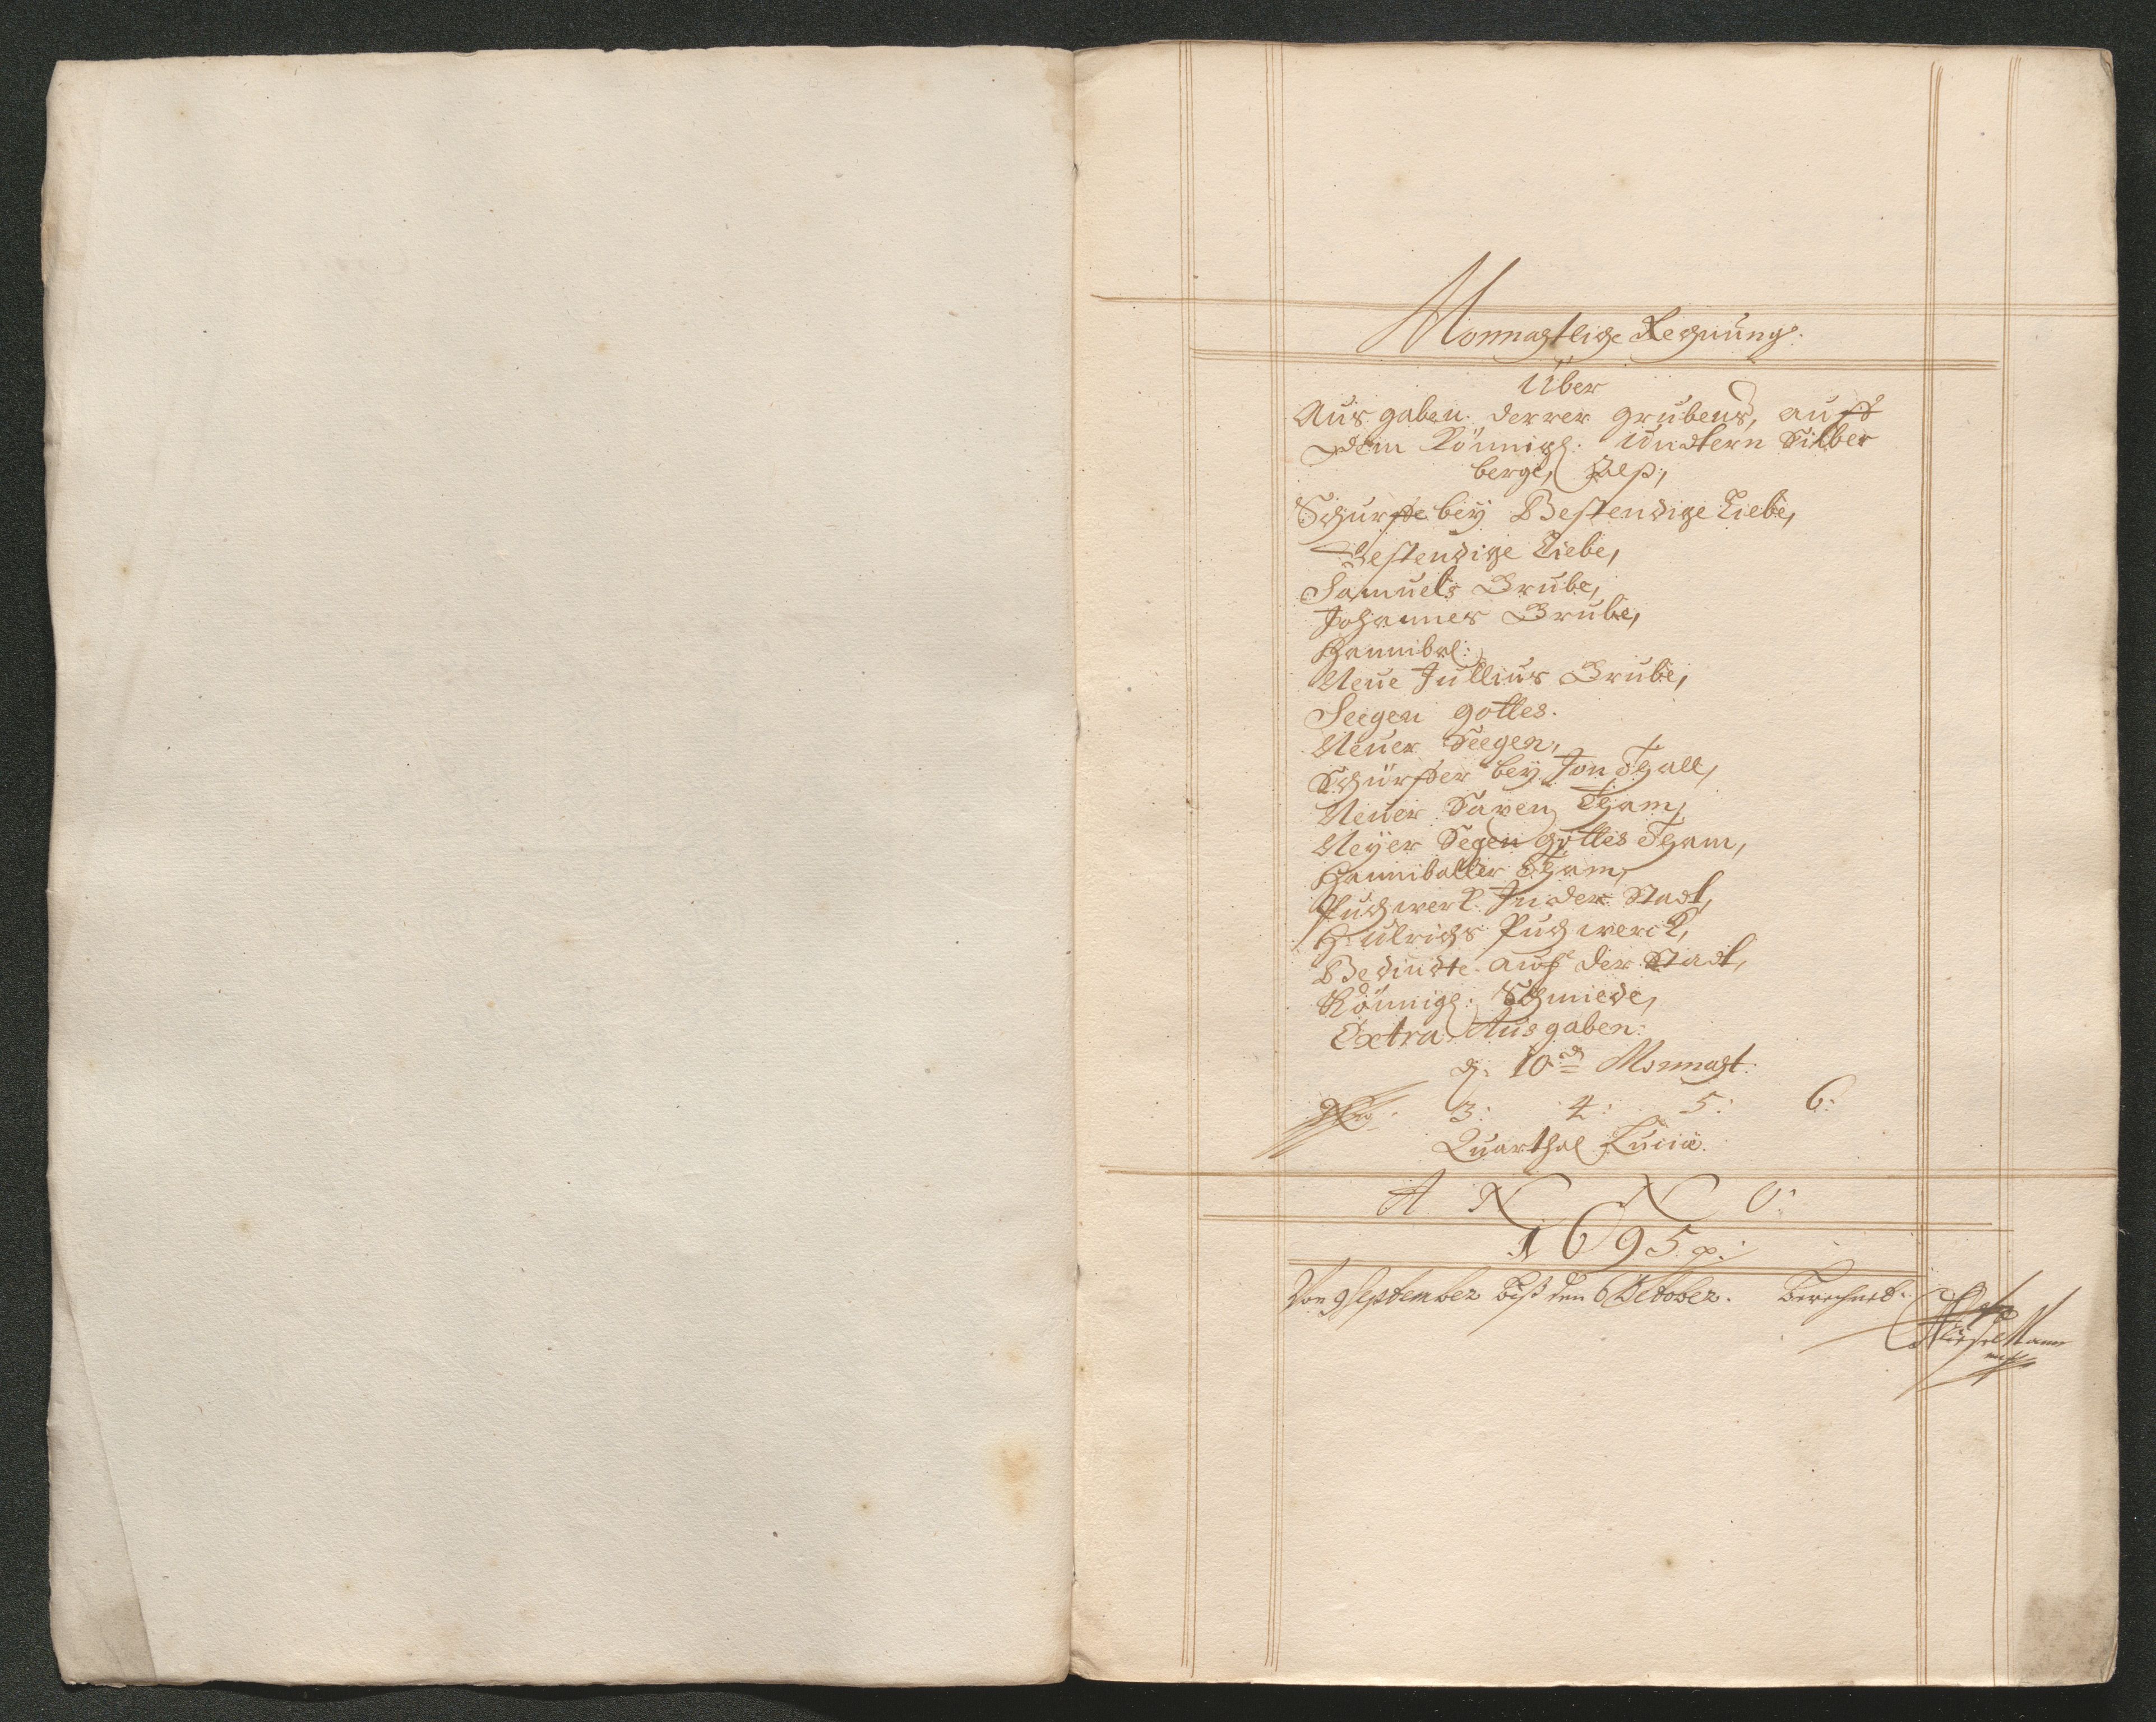 Monnahtliche Rechnung.
Über
Aus gaben. derrer grubens, auff
dem Königl: Undtern Silber
berge, Alß,
Schurffe beÿ Bestendige Liebe,
Bestendige Liebe,
Samuels Grube,
Johannes Grube,
Hannibal:
Neue Jullius Grube,
Seegen gottes.
Neuer Seegen,
Schürffer beÿ Jon Thall,
Neuer Saven Tham,
Neÿer Segen gottes Tham,
Hanniballer Tham,
Puchwerk In der Stadt,
H: Ulrichs Puchwerck,
Bedindte auf der Stadt,
Königl: Schmiede,
Extra Ausgaben:
d: 10d Monnaht.
3: 4: 5: 6:
Quarthal Luciæ.
A N N O:
1695.
Von 9 September biß den 6 October. Berechnet.